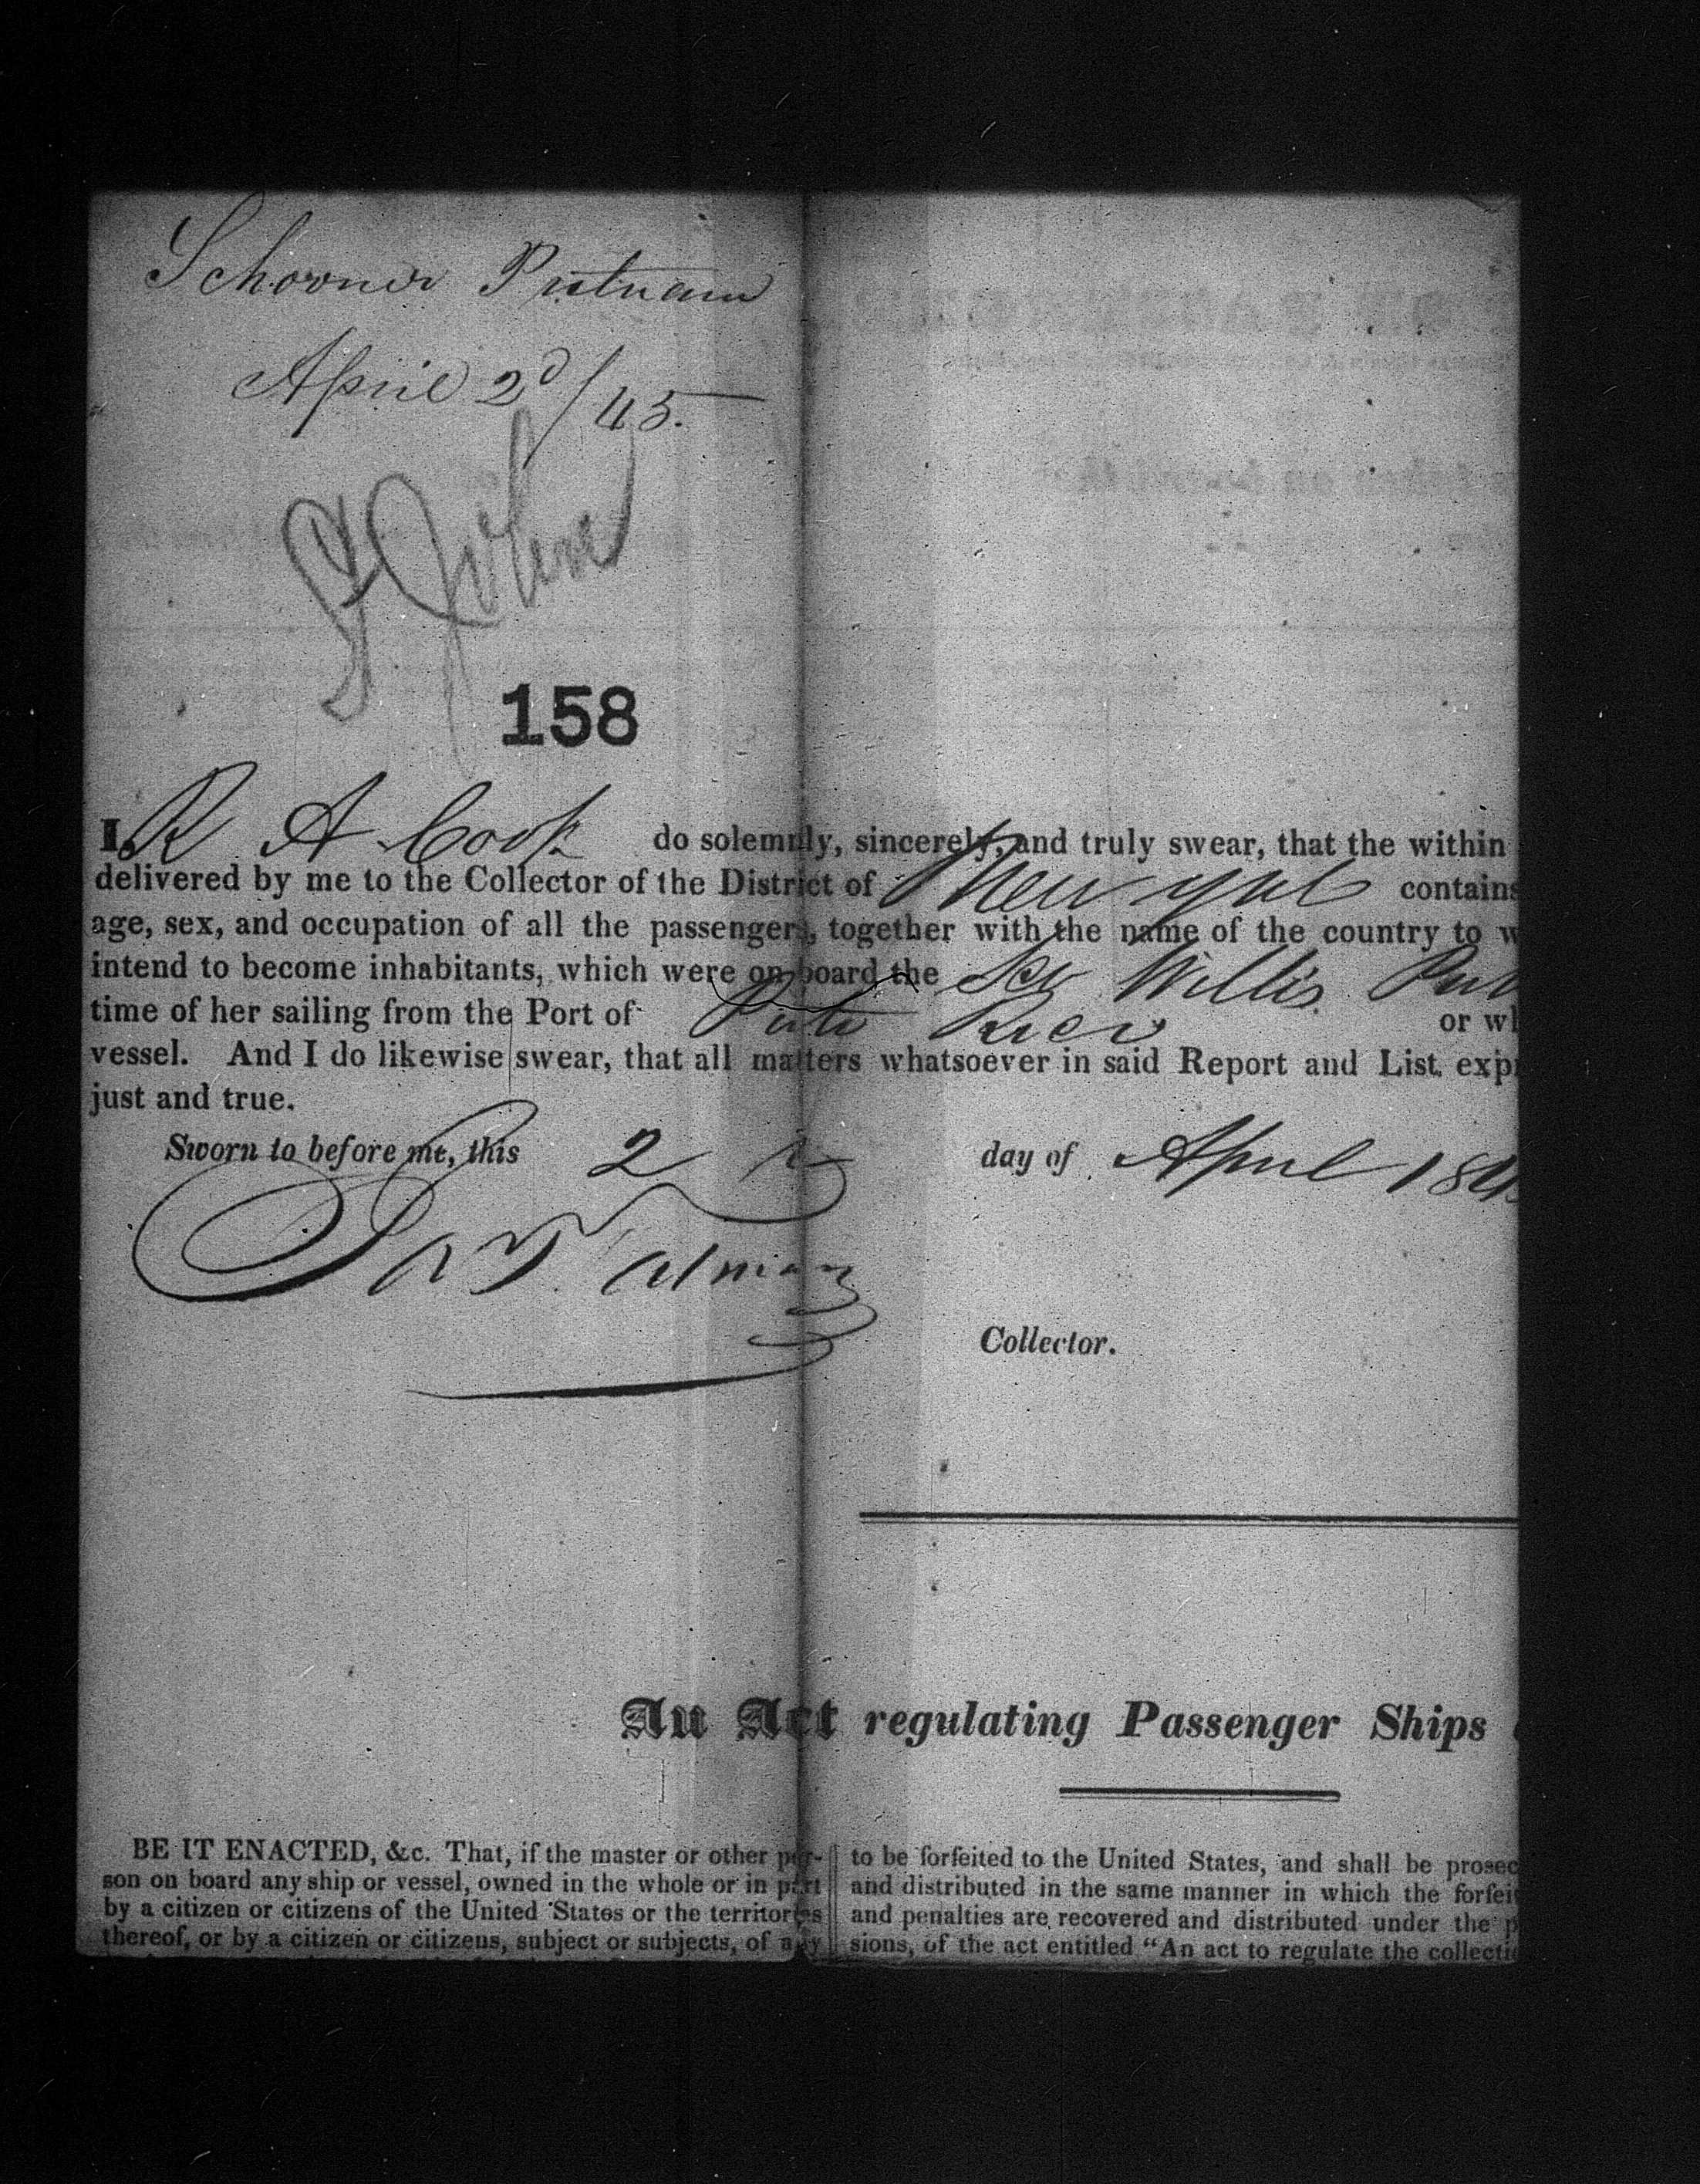 Schooner Putnam
April 2d/45.
St John
158
I, R A Cook do solemnly, sincerely, and truly swear, that the within
delivered by me to the Collector of the District of New York contains
age, sex, and occupation of all the passengers, together with the name of the country to w
intend to become inhabitants, which were on board the Sch Willis Put
time of her sailing from the Port of Porto Rico or wh
vessel. And I do likewise swear, that all matters whatsoever in said Report and List, exp
just and true.
Sworn to before me, this 2 day of April 184
Collector.
An Act regulating Passenger Ships
BE IT ENACTED, &c. That, if the master or other per-
son on board any ship or vessel, owned in the whole or in part
by a citizen or citizens of the United States or the territories
thereof, or by a citizen or citizens, subject or subjects, of any
to be forfeited to the United States, and shall be prosec
and distributed in the same manner in which the forfei
and penalties are recovered and distributed under the p
sions, of the act entitled "An act to regulate the collecti